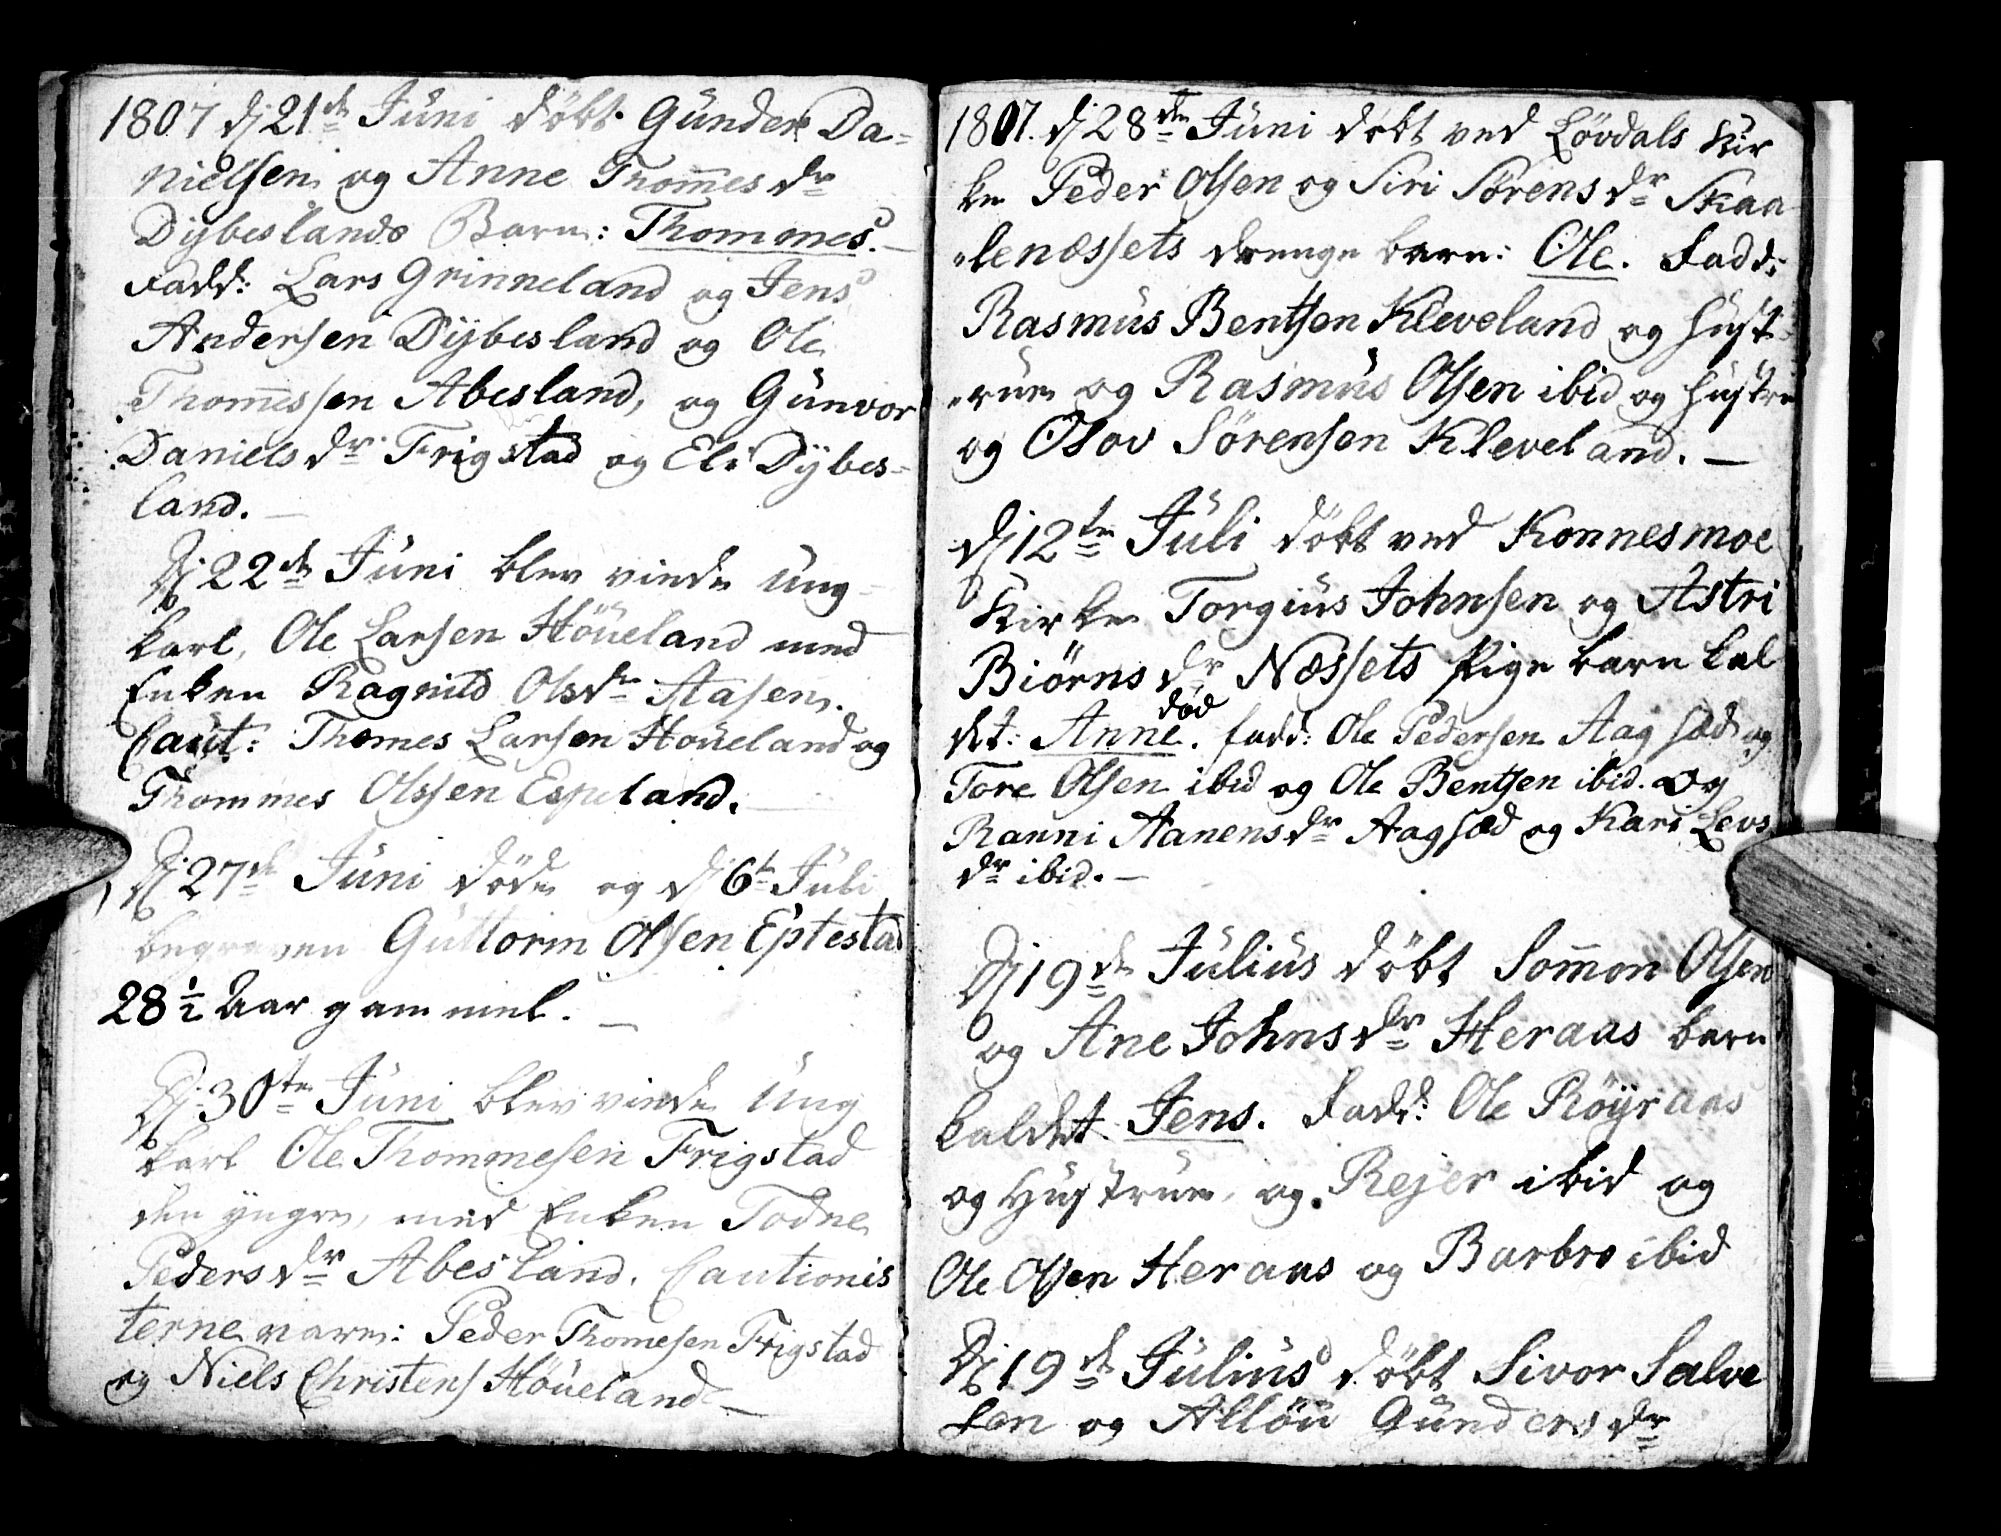 1807 dj 21de Juni döbt Gunder Da=
nielsen og Anne Thom̄es dr
Dybeslands Barn: Thommes. —
Fadd: Lars Grinneland og Jens
Andersen Dÿbesland og Ole
Thom̄essen Abesland, og Gunvor
Daniels dr Frigstad og Eli Dÿbes=
land. —
Dj 22de Juni blev viede Ung=
karl, Ole Larsen Höueland med
Enken Ragnild Olsdr Aasen.
Caut: Thomes Larsen Höueland og
Thommes Olssen Espeland. —
Dj 27de Juni döde og dj 6te Juli
begraven Guttorm Olsen Eptestad
28 ½ Aar gammel. —
Dj 30te Juni blev viede Ung
karl Ole Thommesen Frigstad
den yngre, med Enken Todne
Peders dr Abesland. Cautionis
terne vare: Peder Thomesen Frigstad
og Niels Christens Höueland —
1807. dj 28de Juni döbt ved Lövdals Kir
ke Peder Olsen og Siri Sørens dr Skaa
lenæssets drenge barn: Ole. Fadd:
Rasmus Bentsen Kleveland og Hust=
rue og Rasmus Olsen ibid og Hustru
og Osov Sørensen Kleveland. —
dj 12te Juli döbt ved Konnesmoe
Kirke Torgius Johnsen og Astri
Biørns dr Næssets Pige barn kal
død
det: Anne. fadd: Ole Pedersen Aagsæd og
Tore Olsen ibid og Ole Bentsen ibid. og
Ranni Aanensdr Aagsæd og Kari Levs
dr ibid. —
Dj 19de Julius döbt Som̄on Olsen
og Ane Johns dr Heraas barn
kaldet Jens. Fadd: Ole Röÿraas
og Hustrue, og Rejer ibid og
Ole Olsen Heraas og Barbro ibid
Dj 19de Julius döbt Sivor Salve
sen og Allöu Gunders dr